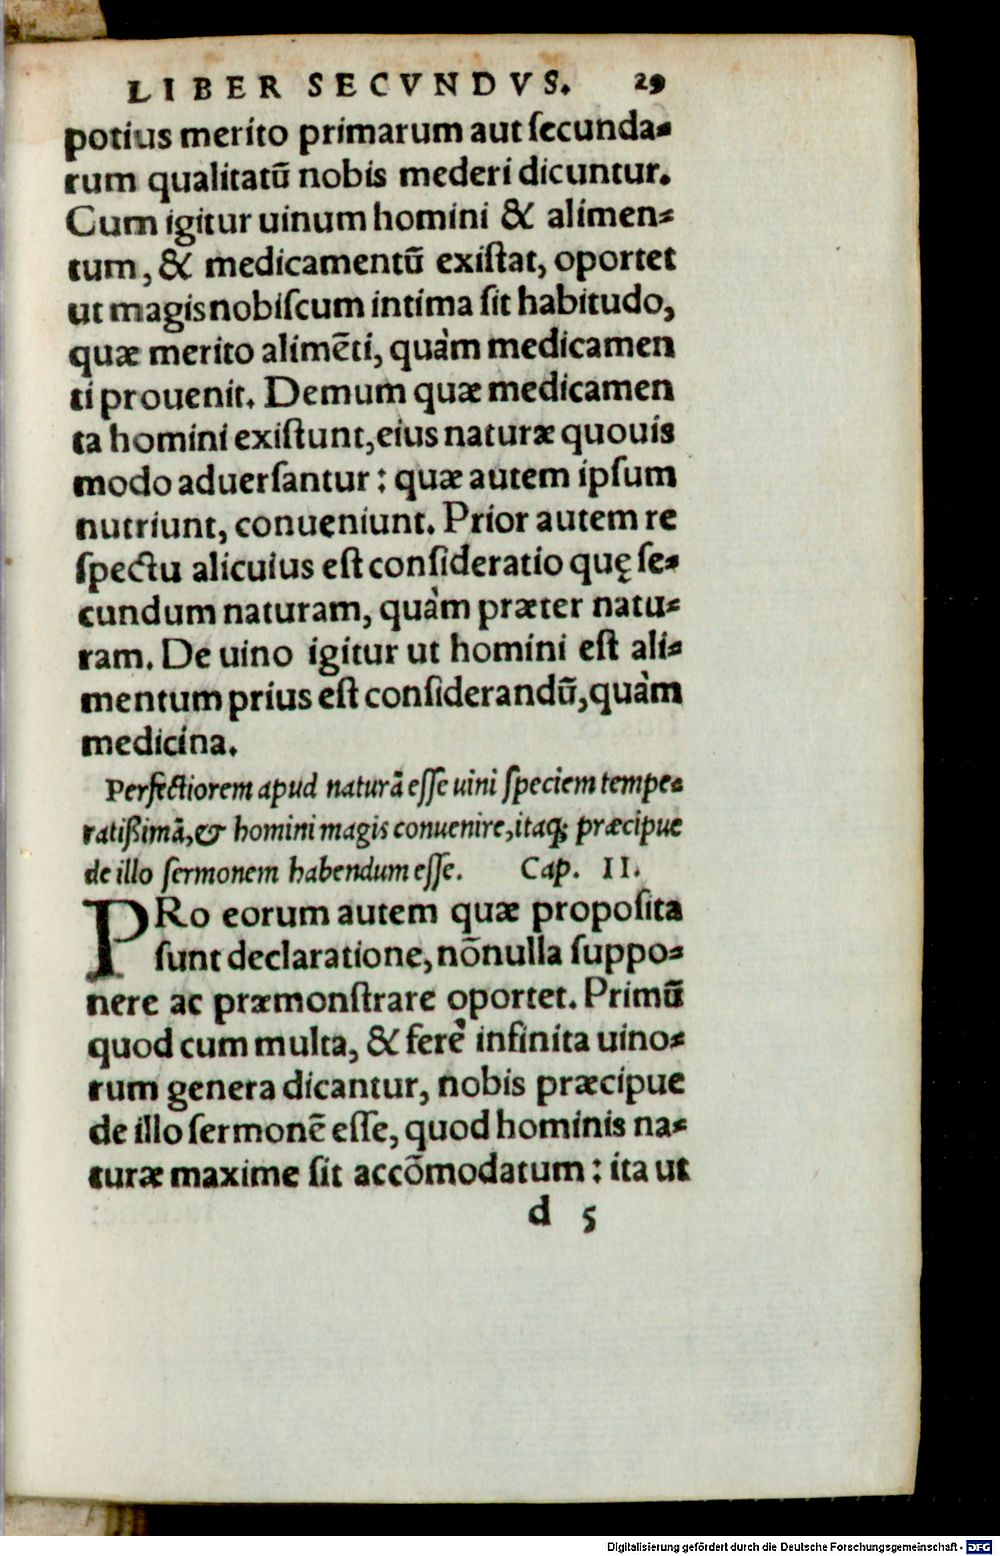 LIBER SECVNDVS. 29
potius merito primarum aut ſecunda-
rum qualitatū nobis mederi dicuntur.
Cum igitur uinum homini & alimen-
tum, & medicamentū exiſtat, oportet
ut magis nobiſcum intima ſit habitudo,
quæ merito alimēti, quàm medicamen
ti prouenit. Demum quæ medicamen
ta homini exiſtunt, eius naturæ quouis
modo aduerſantur: quæ autem ipſum
nutriunt, conueniunt. Prior autem re
ſpectu alicuius eſt conſideratio quę ſe-
cundum naturam, quàm præter natu-
ram. De uino igitur ut homini eſt ali-
mentum prius eſt conſiderandū, quàm
medicina.
Perfectiorem apud naturā eſſe uini ſpeciem tempe-
ratißimā, & homini magis conuenire, itaq; præcipue
de illo ſermonem habendum eſſe. Cap. II.
PRo eorum autem quæ propoſita
ſunt declaratione, nōnulla ſuppo-
nere ac præmonſtrare oportet. Primū
quod cum multa, & ferè infinita uino-
rum genera dicantur, nobis præcipue
de illo ſermonē eſſe, quod hominis na-
turæ maxime ſit accōmodatum: ita ut
d 5
Digitalisierung gefördert durch die Deutsche Forschungsgemeinschaft - DFG